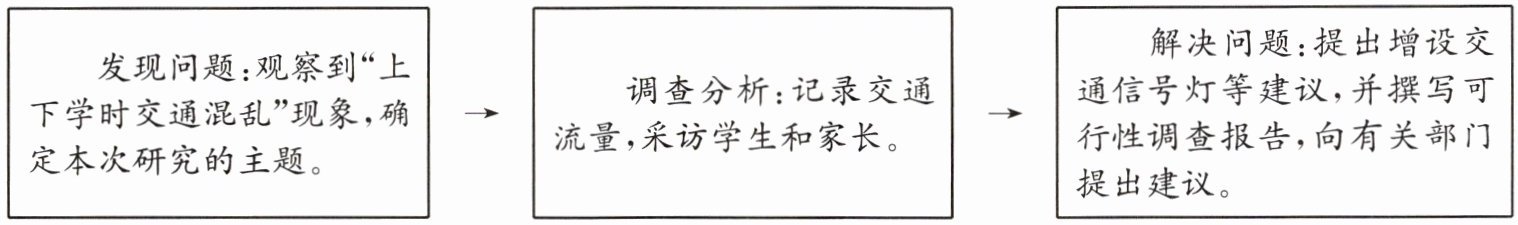 发现问题:观察到“上
下学时交通混乱”现象,确
定本次研究的主题。
→
调查分析:记录交通
流量,采访学生和家长。
→
解决问题:提出增设交
通信号灯等建议,并撰写可
行性调查报告,向有关部门
提出建议。